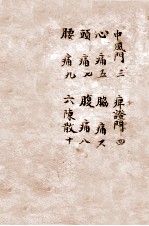 中風門 三 痺證門 四
心痛 五 脇痛 六
頭痛 七 腹痛 八
腰痛 九 六陳散 十